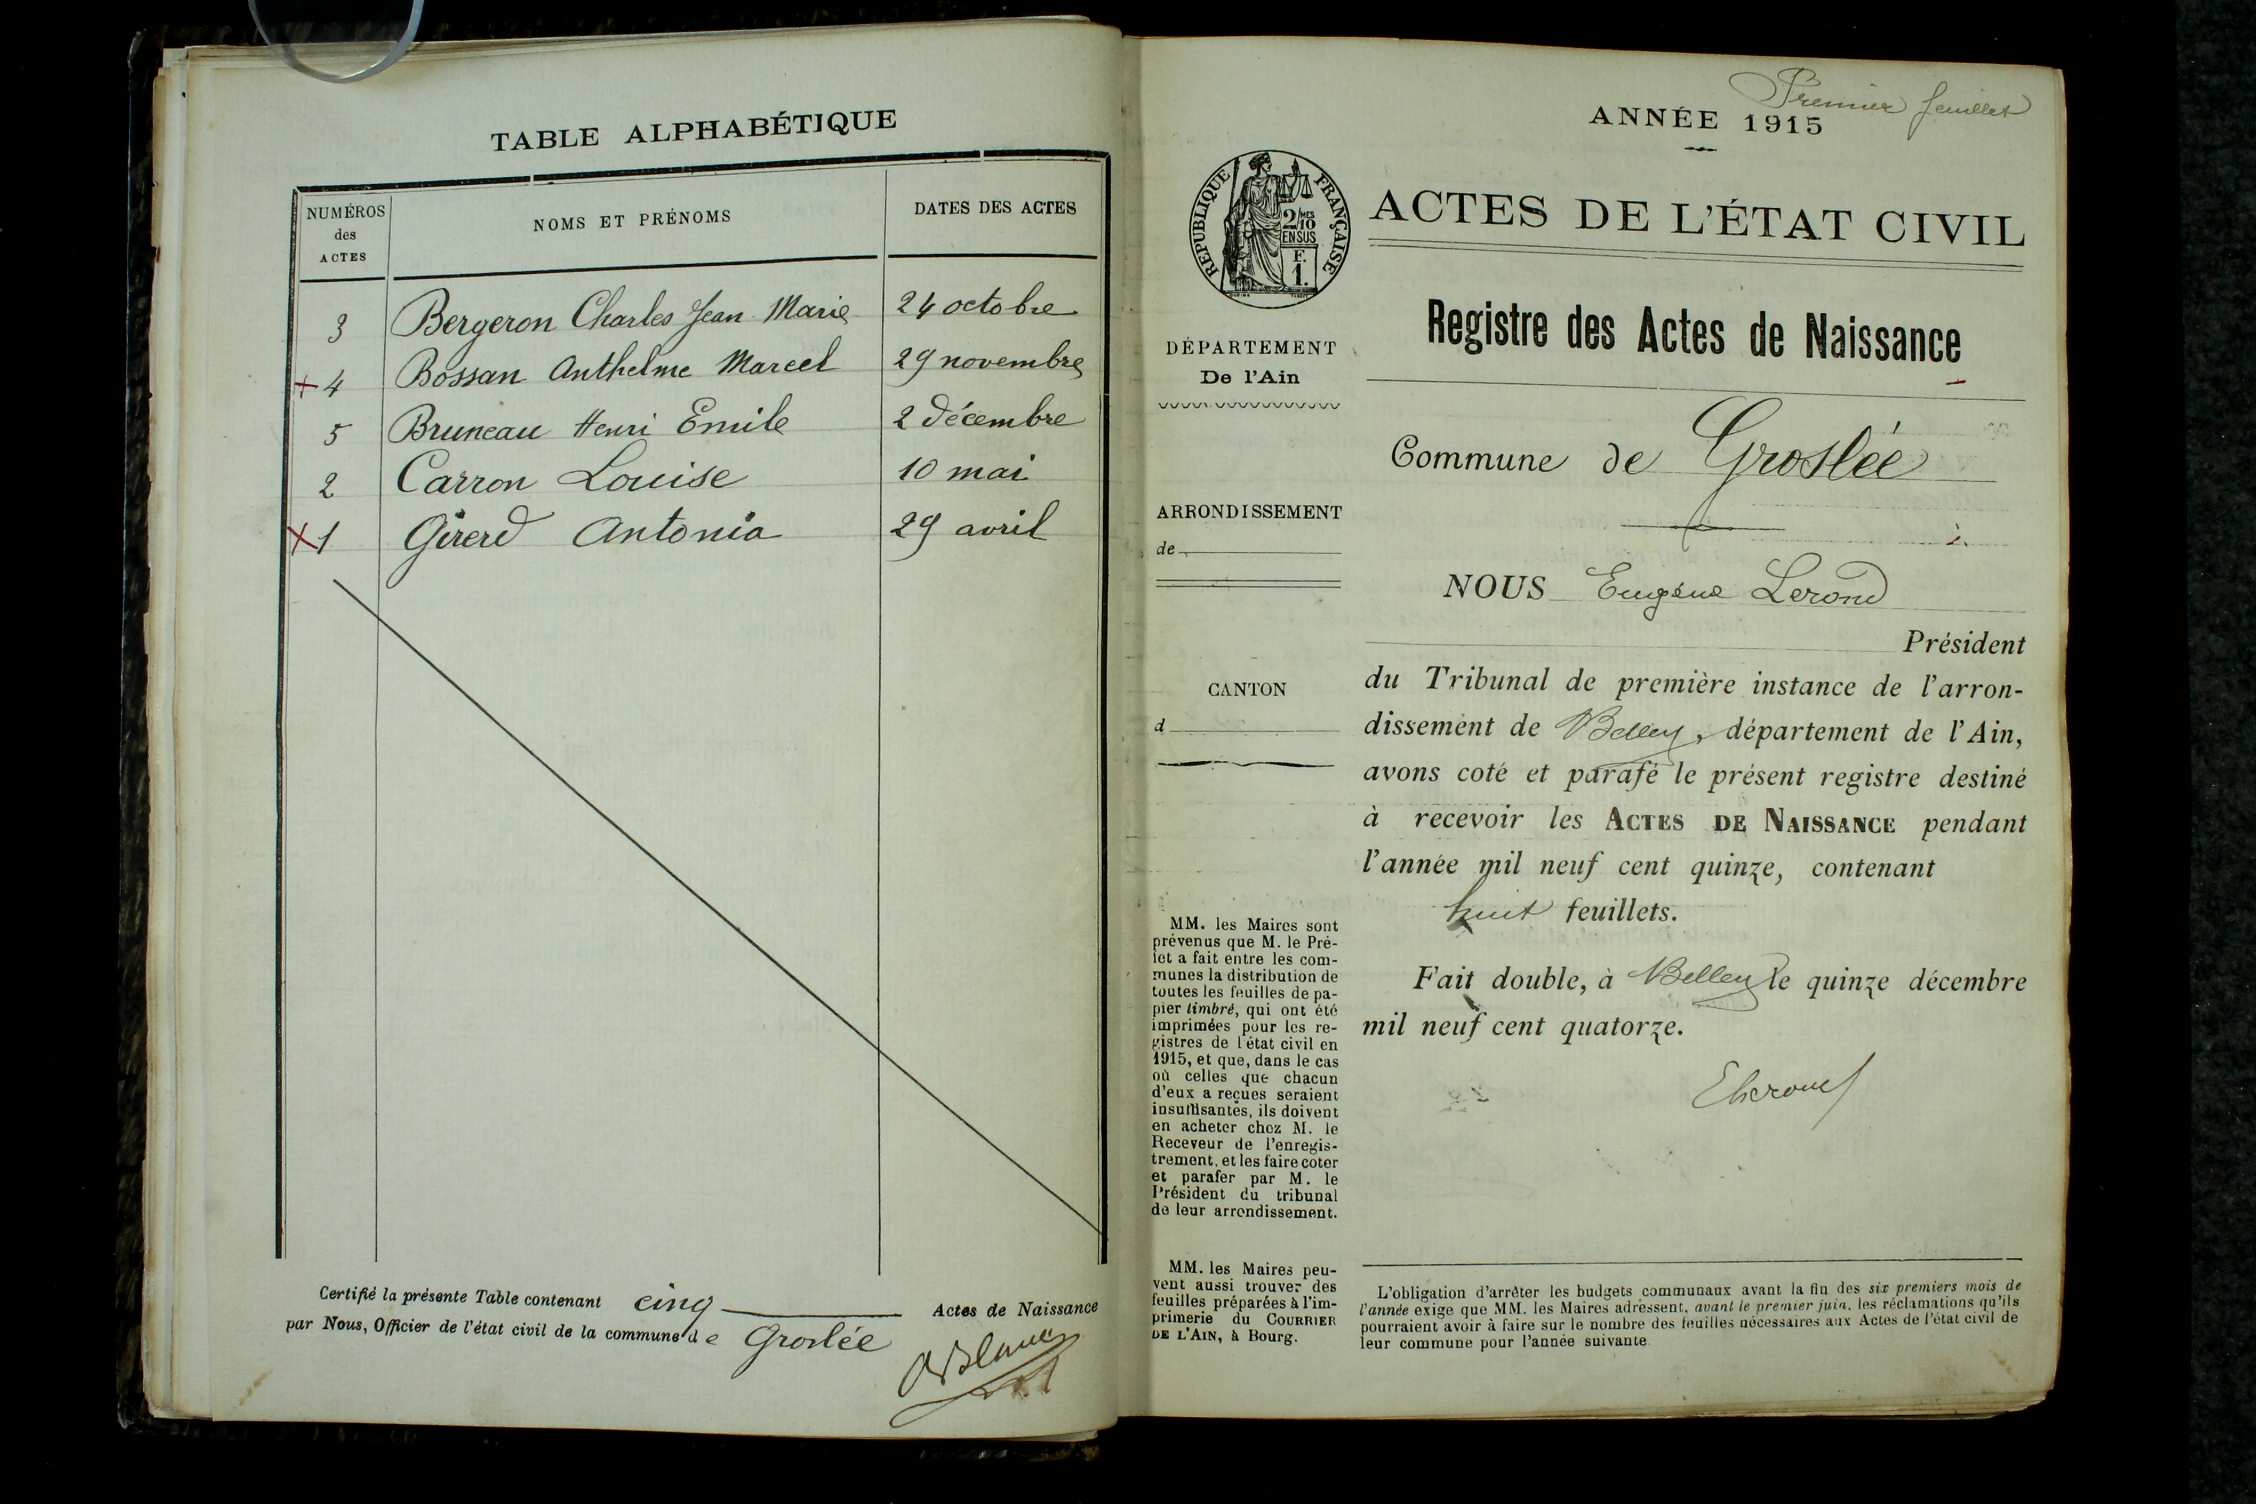 TABLE ALPHABÉTIQUE
NUMÉROS des ACTES
NOMS ET PRÉNOMS
DATES DES ACTES
3 Bergeron Charles Jean Marie 24 octobre
+ 4 Bossan Anthelme Marcel 29 novembre
5 Bruneau Henri Emile 2 décembre
2 Carron Louise 10 mai
X 1 Girerd Antonia 29 avril
Certifié la présente Table contenant cinq Actes de Naissance
par Nous, Officier de l'état civil de la commune de Groslée
Premier feuillet
ANNÉE 1915
RÉPUBLIQUE FRANÇAISE
2/10 MES
EN SUS
F.
1.
ACTES DE L'ÉTAT CIVIL
Registre des Actes de Naissance
DÉPARTEMENT
De l'Ain
Commune de Groslée
ARRONDISSEMENT
de
NOUS Eugène Lerond
Président
CANTON
d
du Tribunal de première instance de l'arron-
dissement de Belley, département de l'Ain,
avons coté et parafé le présent registre destiné
à recevoir les ACTES DE NAISSANCE pendant
l'année mil neuf cent quinze, contenant
huit feuillets.
Fait double, à Belley le quinze décembre
mil neuf cent quatorze.
ELerond
MM. les Maires sont
prévenus que M. le Pré-
fet a fait entre les com-
munes la distribution de
toutes les feuilles de pa-
pier timbré, qui ont été
imprimées pour les re-
gistres de l'état civil en
1915, et que, dans le cas
où celles que chacun
d'eux a reçues seraient
insuffisantes, ils doivent
en acheter chez M. le
Receveur de l'enregis-
trement, et les faire coter
et parafer par M. le
Président du tribunal
de leur arrondissement.
MM. les Maires peu-
vent aussi trouver des
feuilles préparées à l'im-
primerie du COURRIER
DE L'AIN, à Bourg.
L'obligation d'arrêter les budgets communaux avant la fin des six premiers mois de
l'année exige que MM. les Maires adressent, avant le premier juin, les réclamations qu'ils
pourraient avoir à faire sur le nombre des feuilles nécessaires aux Actes de l'état civil de
leur commune pour l'année suivante.